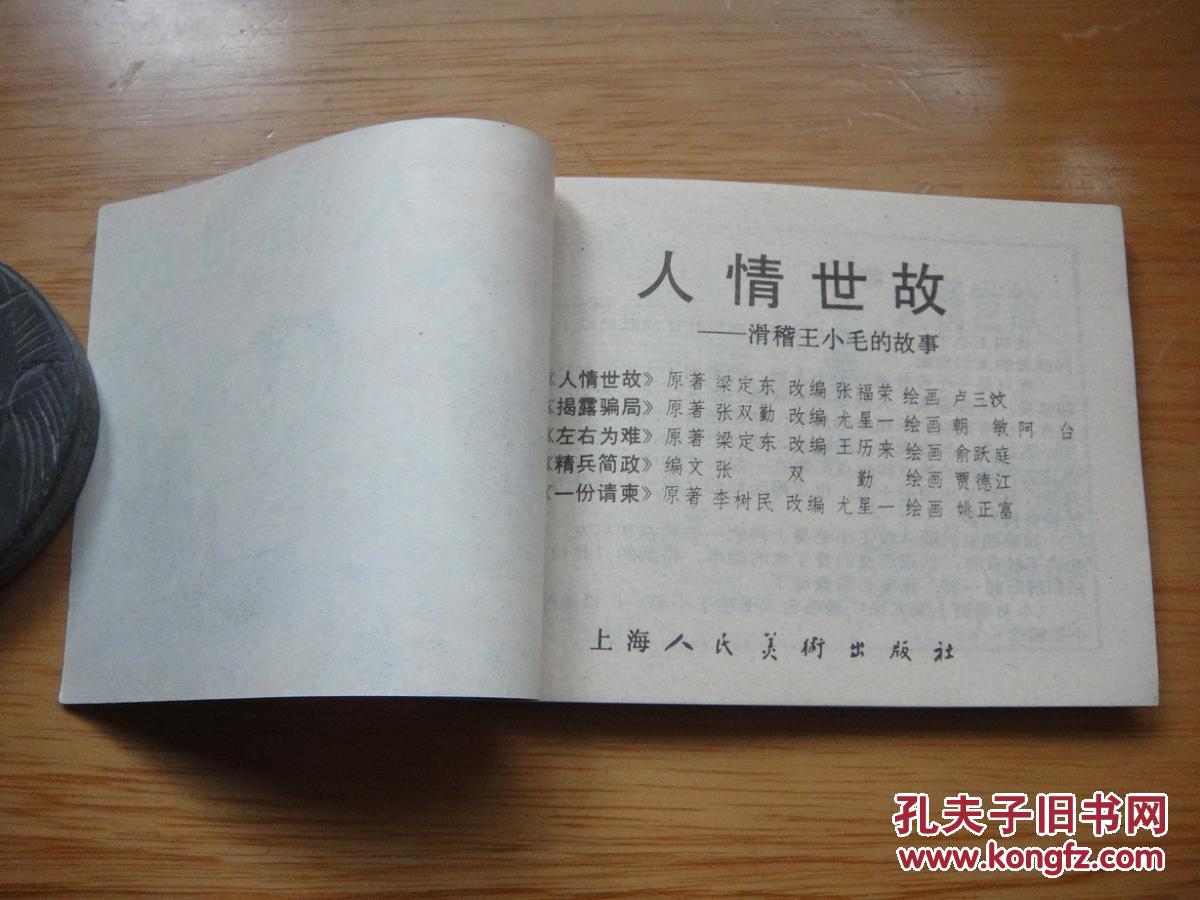 人情世故
——滑稽王小毛的故事
《人情世故》原著 梁定东 改编 张福荣 绘画 卢三汶
《揭露骗局》原著 张双勤 改编 尤星一 绘画 朝 敏 阿 台
《左右为难》原著 梁定东 改编 王历来 绘画 俞跃庭
《精兵简政》编文 张 双 勤 绘画 贾德江
《一份请柬》原著 李树民 改编 尤星一 绘画 姚正富
上海人民美術出版社
孔夫子旧书网
www.kongfz.com